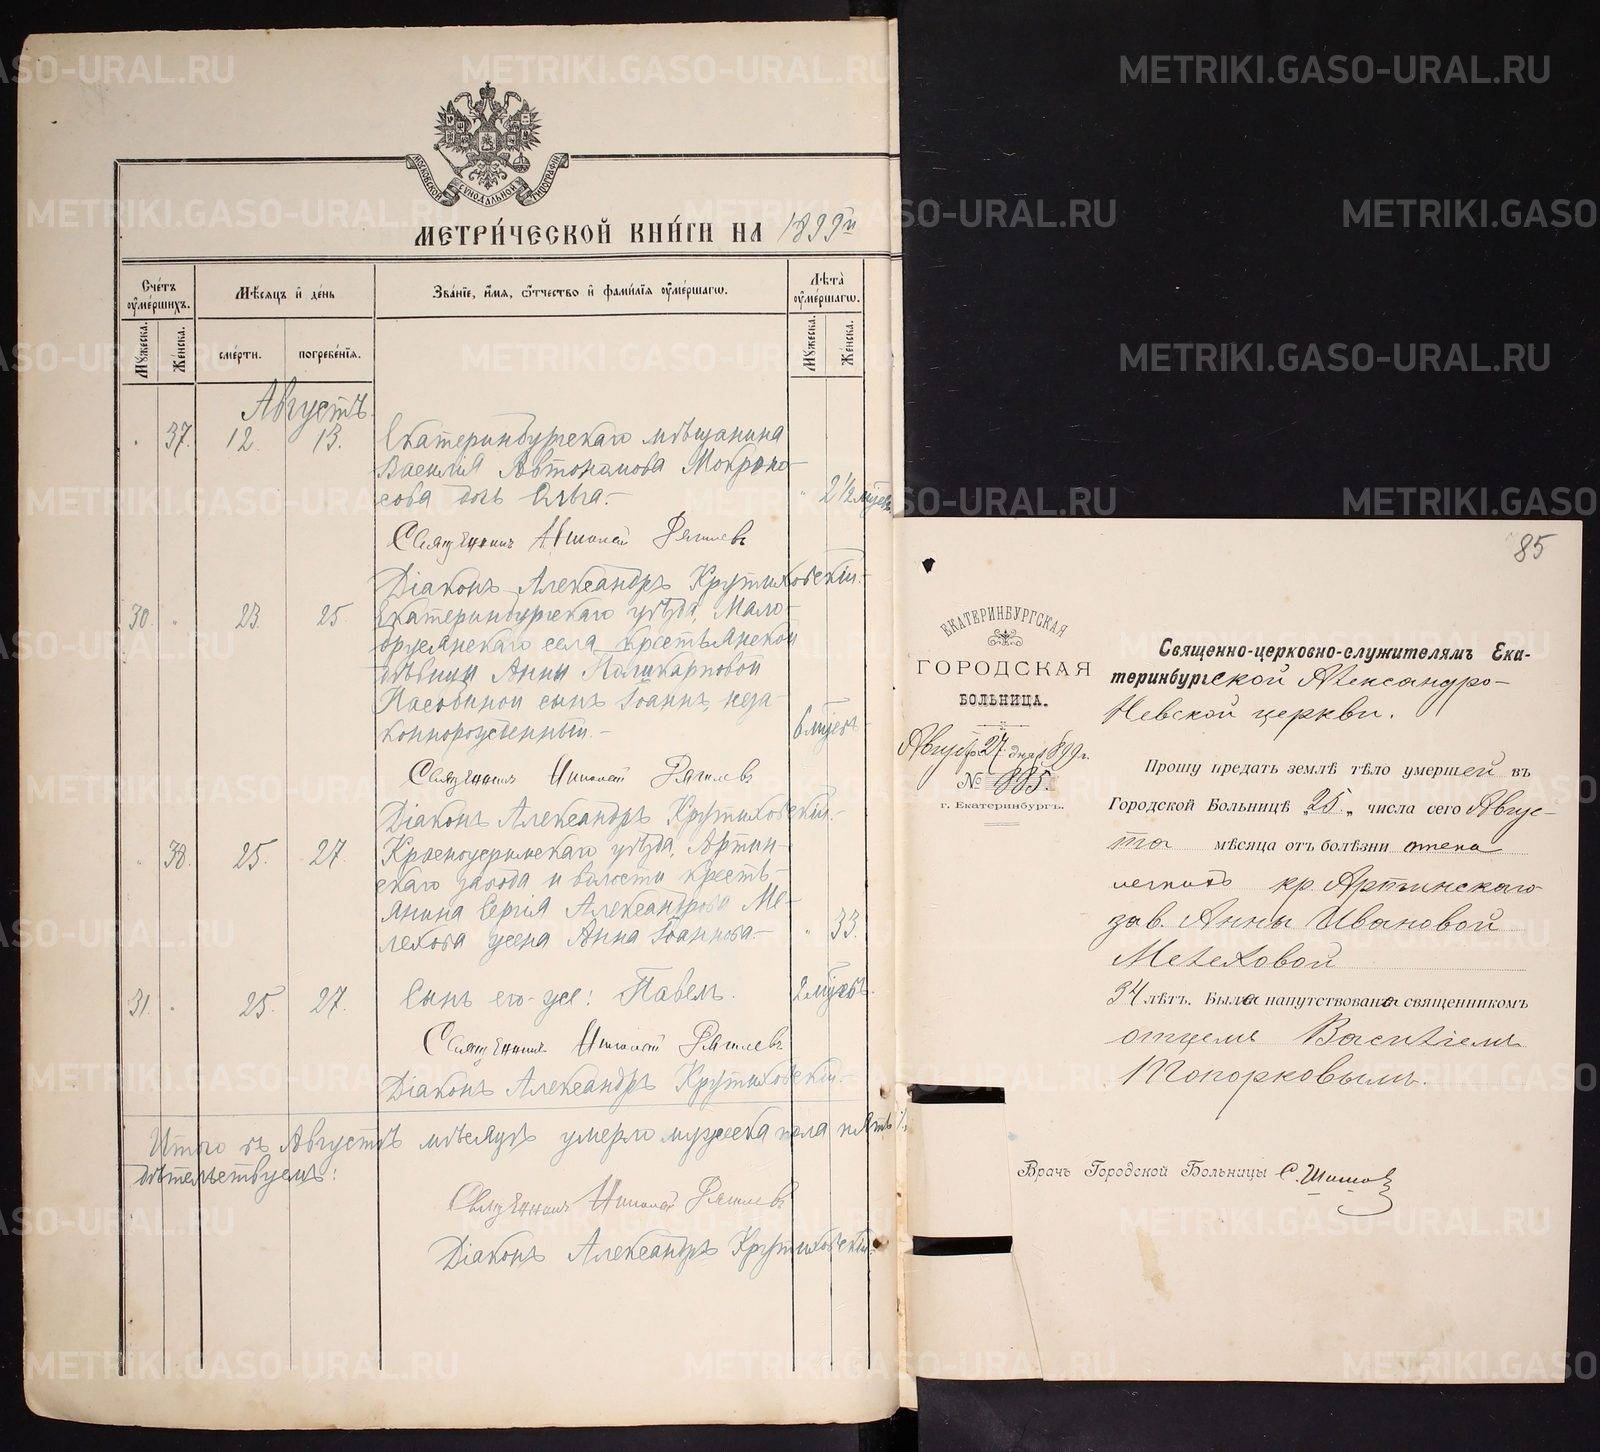 МОСКОВСКОЙ СУНОДАЛЬНОЙ ТИПОГРАФІИ
МЕТРИ́ЧЕСКОЙ КНИ́ГИ НА 1899 г.
Сче́тъ оум́ершихъ.
Мѣ́сяцъ и де́нь
Зва́ніе, и́мя, ѻ́тчество и фами́лія оуме́ршагѡ.
Лѣта̀ оуме́ршагѡ.
Му́жеска.
Же́нска.
сме́рти.
погребе́нія.
Му́жеска.
Же́нска.
Августъ.
" 37. 12. 13. Екатеринбургскаго мѣщанина
Василія Автономова Мокроно-
сова дочь Ольга.- " 2 1/2 мѣсяц.
Священникъ Николай
Діаконъ Александръ Крутиховскій.-
30. " 23. 25. Екатеринбургскаго уѣзда, Мало-
брусянскаго села крестьянской
дѣвицы Анны Поликарповой
сынъ Іоаннъ, неза-
коннорожденный.- 6 мѣсяц.
Священникъ Николай
Діаконъ Александръ Крутиховскій.-
" 38. 25. 27. Красноуфимскаго уѣзда, Артин-
скаго завода и волости кресть-
янина Сергія Александрова Ме-
лехова жена Анна Іоаннова.- " 33.
31. " 25. 27. Сынъ его-же: Павелъ. 2 мѣсяц.
Священникъ Николай
Діаконъ Александръ Крутиховскій.-
Итого въ Августѣ мѣсяцѣ умерло мужеска пола пять
дѣтельствуемъ:
Священникъ Николай
Діаконъ Александръ Крутиховскій.
85
ЕКАТЕРИНБУРГСКАЯ
ГОРОДСКАЯ
БОЛЬНИЦА.
Августа 27 дня 1899 г.
№ 885.
г. Екатеринбургъ.
Священно-церковно-служителямъ Ека-
теринбургской Александро-
Невской церкви.
Прошу предать землѣ тѣло умершей въ
Городской Больницѣ „25„ числа сего Авгус-
та мѣсяца отъ болѣзни отека
легкихъ кр. Артинскаго
зав. Анны Ивановой
Мелеховой
34 лѣтъ. Была напутствована священникомъ
отцемъ Василіемъ
Топорковымъ.
Врачъ Городской Больницы С.
METRIKI.GASO-URAL.RU